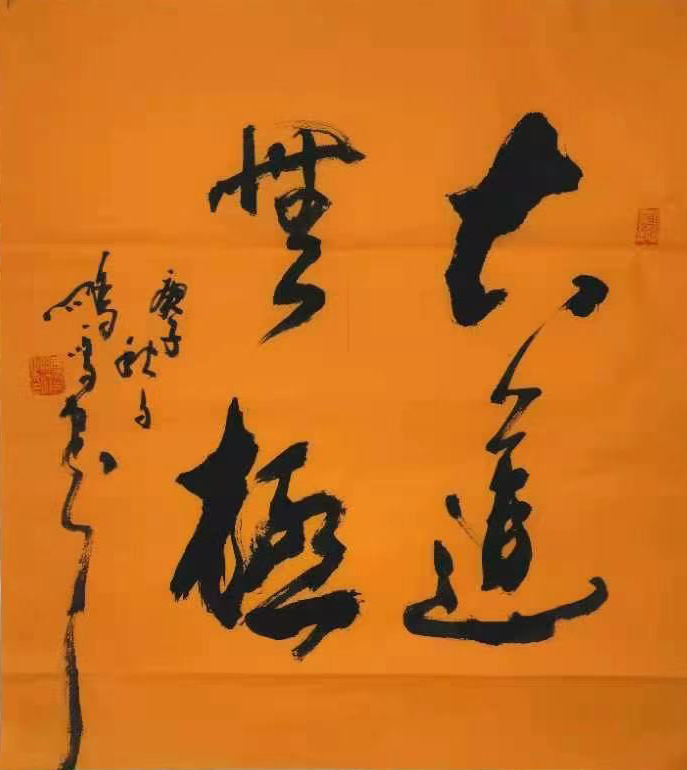 大道
無極
庚子秋月
鵬鳴書